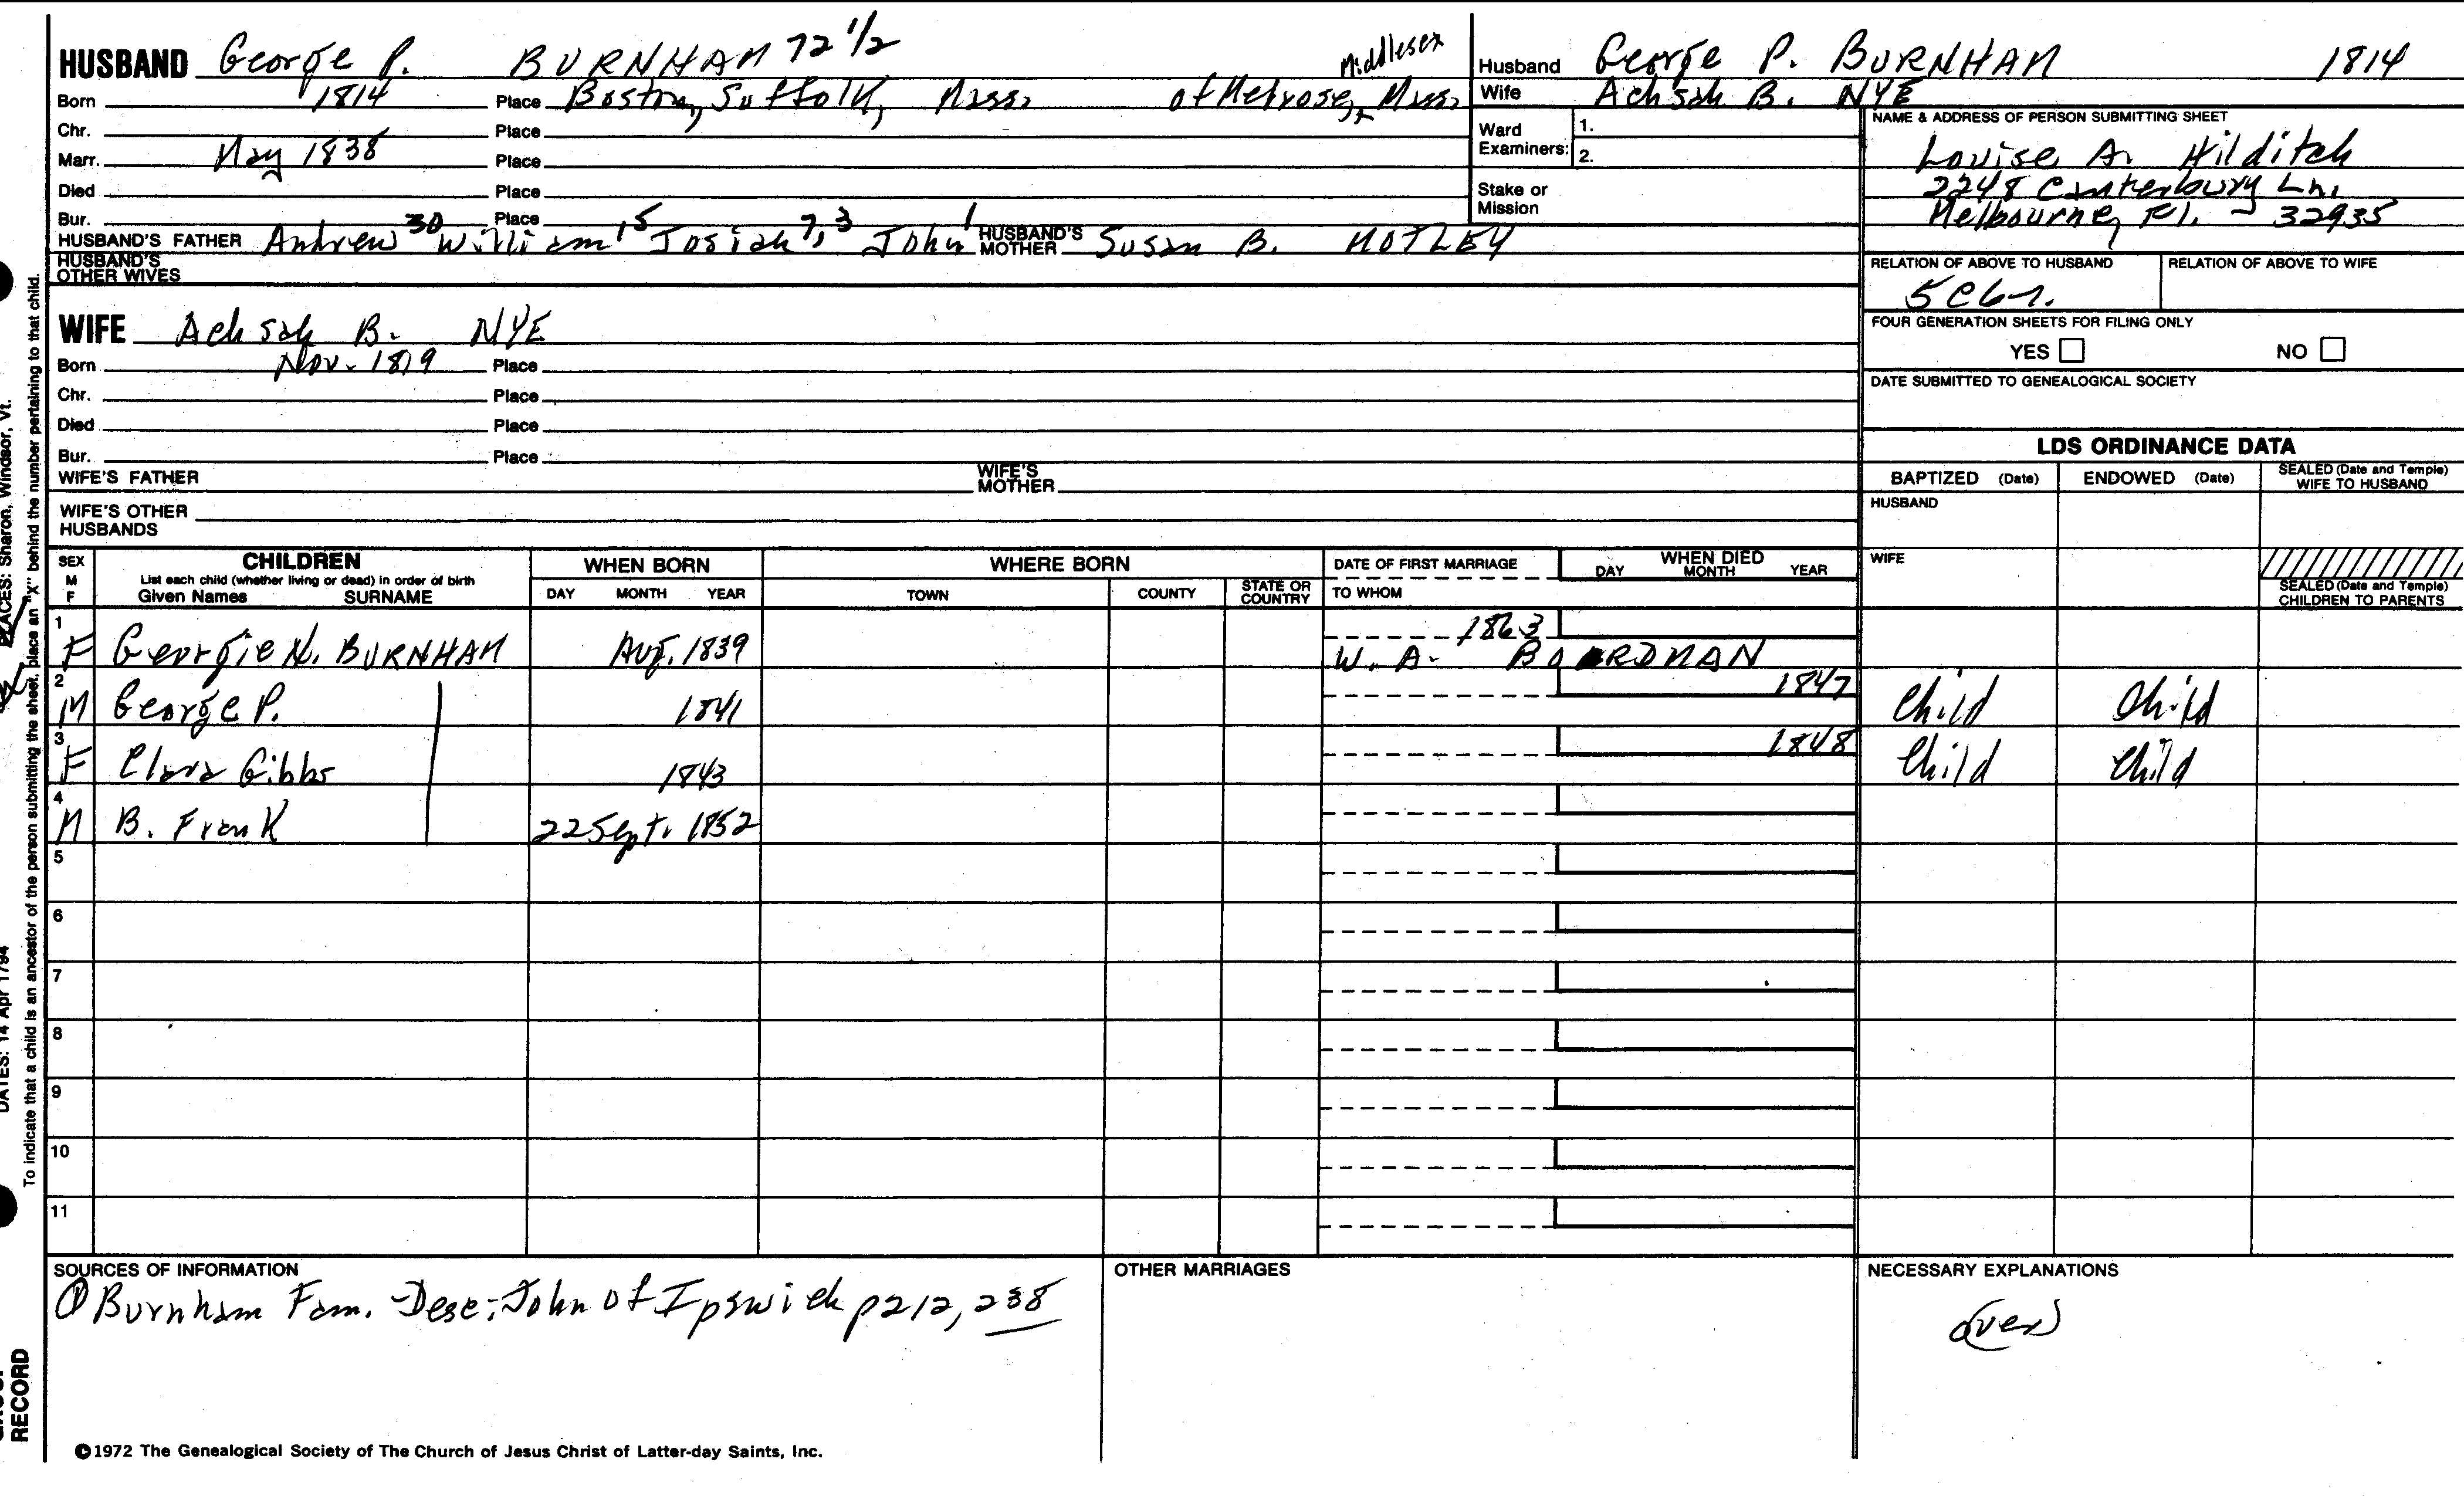 HUSBAND George P. BURNHAM 72 1/2
Born 1814 Place Boston, Suffolk, Mass. of Melrose, Middlesex Mass.
Chr. Place
Marr. May 1838 Place
Died Place
Bur. Place
HUSBAND'S FATHER Andrew 30 William 15 Josiah 7, 3 John 1 HUSBAND'S MOTHER Susan B. MOTLEY
HUSBAND'S OTHER WIVES
WIFE Achsah B. NYE
Born Nov. 1819 Place
Chr. Place
Died Place
Bur. Place
WIFE'S FATHER WIFE'S MOTHER
WIFE'S OTHER HUSBANDS
Husband George P. BURNHAM 1814
Wife Achsah B. NYE
Ward Examiners: 1.
2.
Stake or Mission
NAME & ADDRESS OF PERSON SUBMITTING SHEET
Louise A. Hilditch
2248 Canterbury Ln.
Melbourne, Fl. - 32935
RELATION OF ABOVE TO HUSBAND RELATION OF ABOVE TO WIFE
FOUR GENERATION SHEETS FOR FILING ONLY
YES NO
DATE SUBMITTED TO GENEALOGICAL SOCIETY
LDS ORDINANCE DATA
BAPTIZED (Date) ENDOWED (Date) SEALED (Date and Temple) WIFE TO HUSBAND
HUSBAND
WIFE
SEALED (Date and Temple) CHILDREN TO PARENTS
SEX M F
CHILDREN
List each child (whether living or dead) in order of birth
Given Names SURNAME
WHEN BORN
DAY MONTH YEAR
WHERE BORN
TOWN COUNTY STATE OR COUNTRY
DATE OF FIRST MARRIAGE
TO WHOM
WHEN DIED
DAY MONTH YEAR
1 F Georgie N. BURNHAM Aug. 1839 1863
W. A. BOARDMAN
2 M George P. 1841 1847 Child Child
3 F Clara Gibbs 1843 1848 Child Child
4 M B. Frank 22 Sept. 1852
5
6
7
8
9
10
11
SOURCES OF INFORMATION
① Burnham Fam. - Desc; John of Ipswich p 212, 238
OTHER MARRIAGES
NECESSARY EXPLANATIONS
(over)
©1972 The Genealogical Society of The Church of Jesus Christ of Latter-day Saints, Inc.
PLACES: Sharon, Windsor, Vt.
DATES: 14 Apr 1794
To indicate that a child is an ancestor of the person submitting the sheet, place an "X" behind the number pertaining to that child.
RECORD